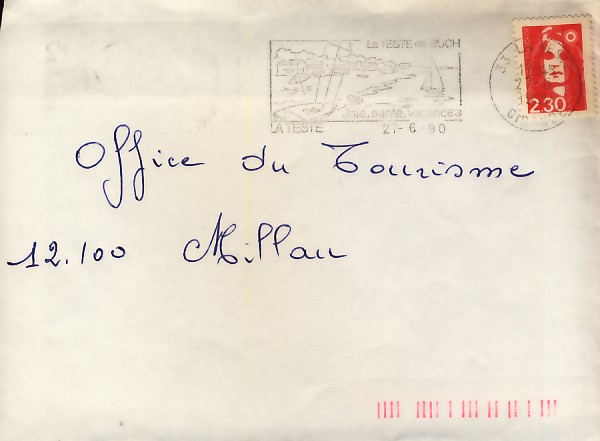 La TESTE de BUCH
Joie, santé, vacances
LA TESTE 27-6-90
33
2.30
Office du Tourisme
12.100 Millau